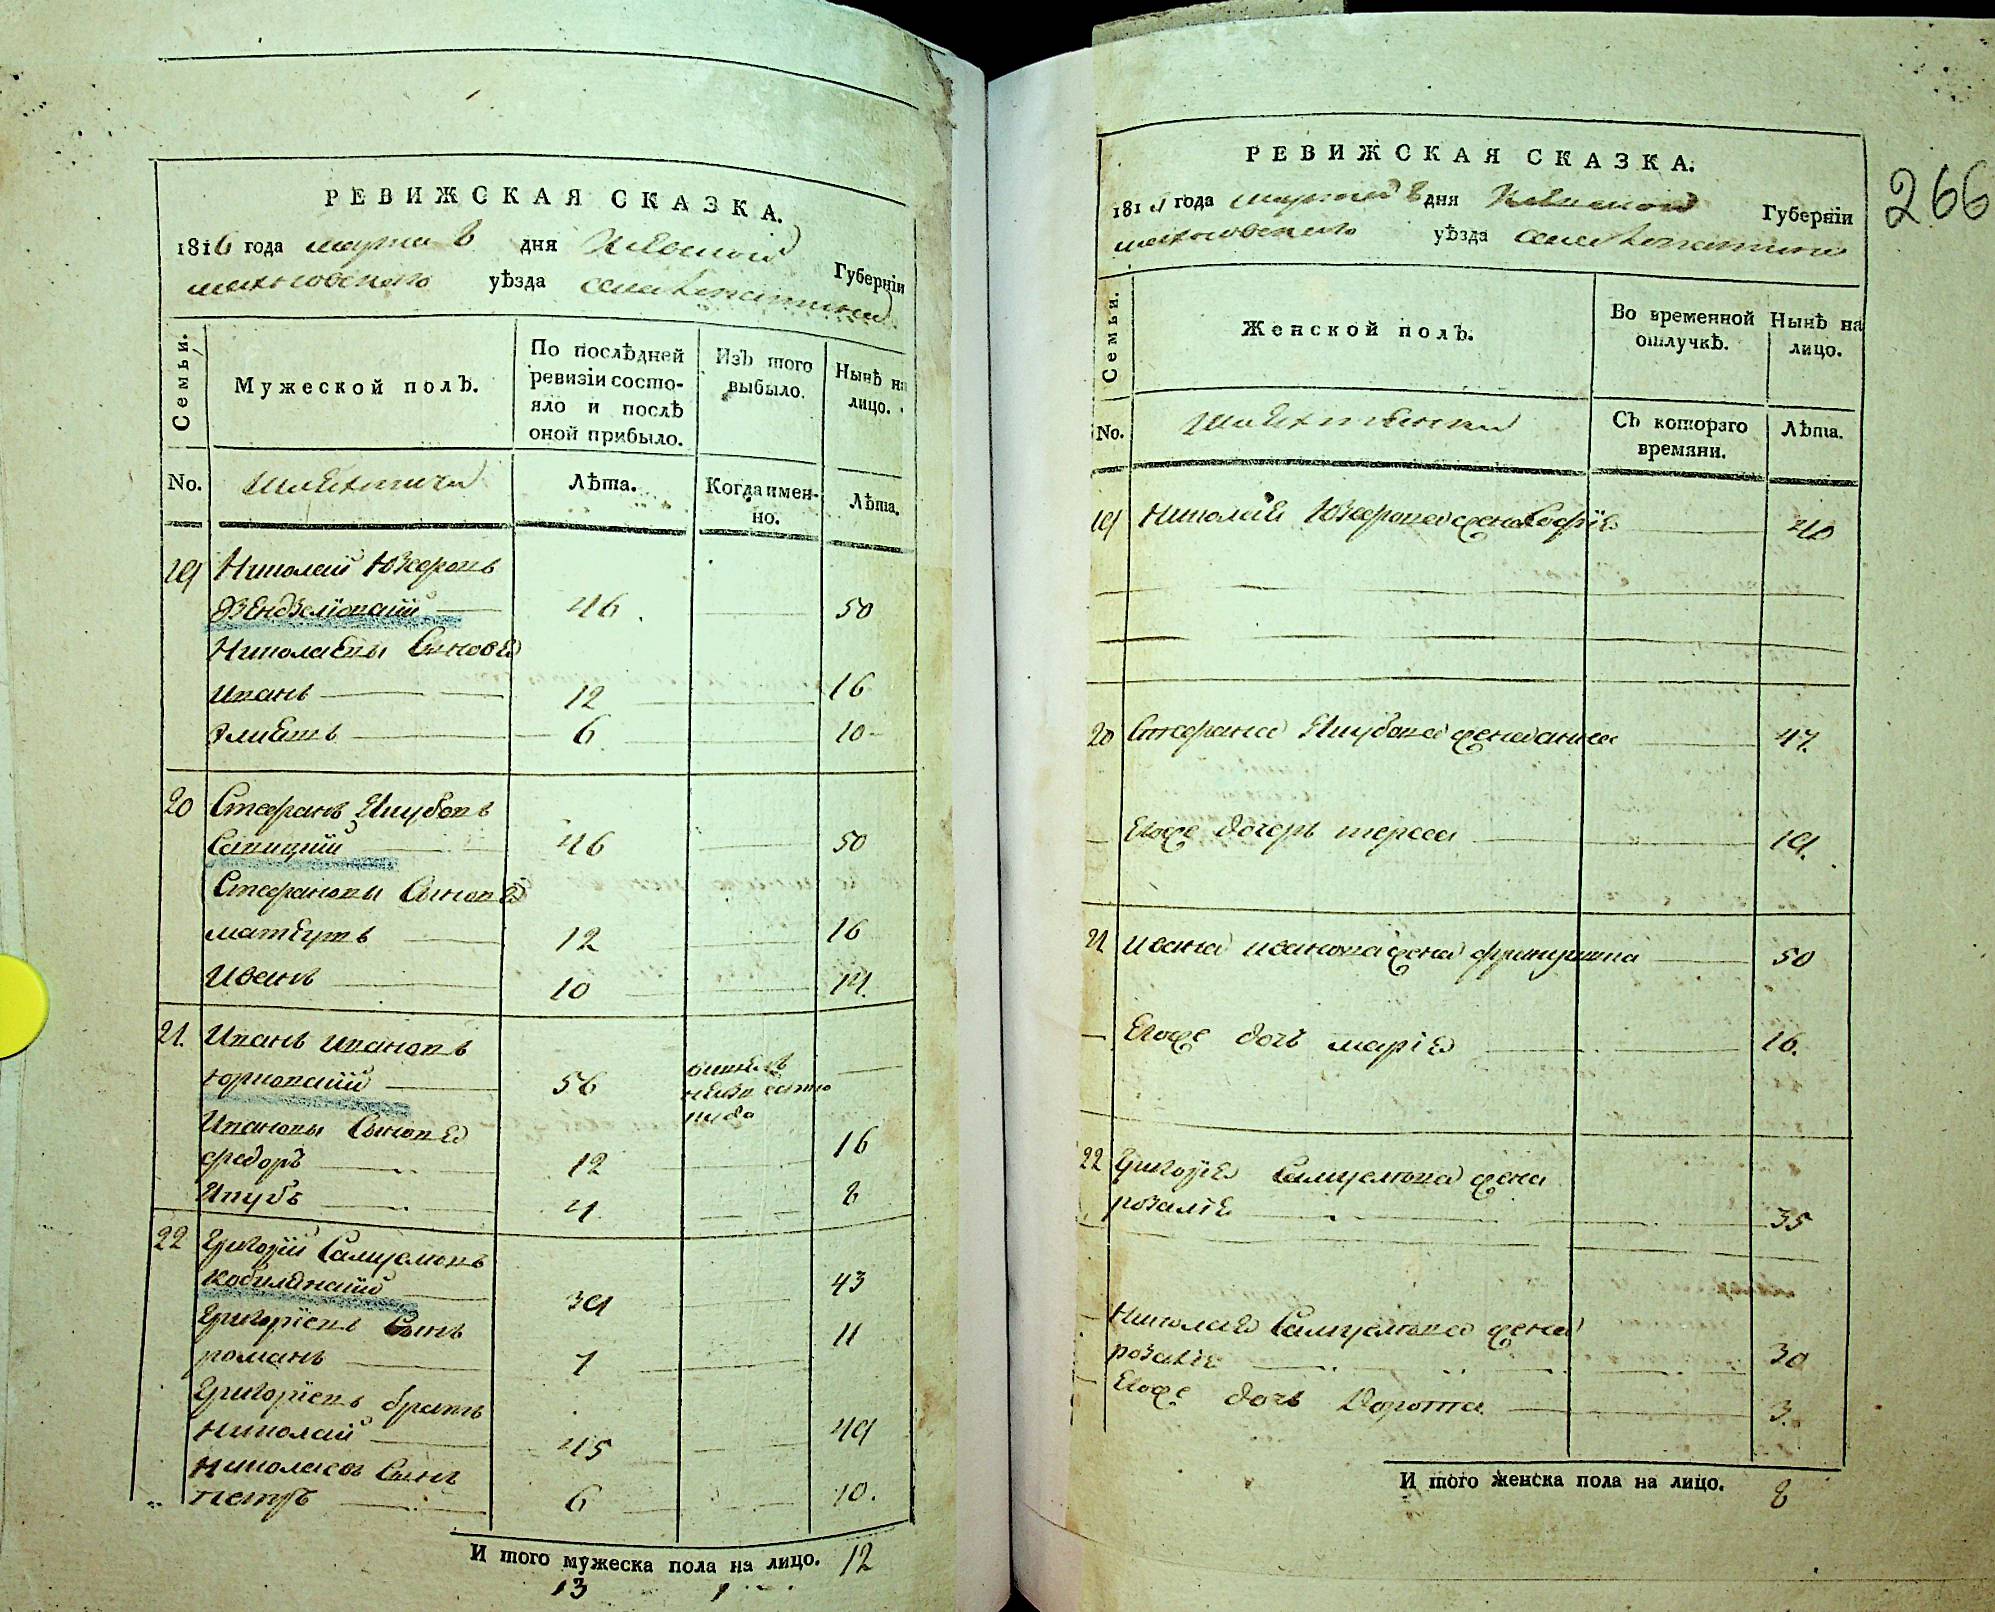 РЕВИЖСКАЯ СКАЗКА.
1816 года марта 8 дня Киевской Губерніи
махновского уѣзда села
Семьи.
Мужеской полъ.
По послѣдней ревизіи состо-
яло и послѣ
оной прибыло.
Изъ того выбыло.
Нынѣ на лицо.
No.
Шляхтичи
Лѣта.
Когда имен-
но.
Лѣта.
19 Николай Юзефовъ
46 50
Николаевы Сыновя
Иванъ 12 16
6 10
20 Стефанъ Якубовъ
Савицкий 46 50
Стефановы Сыновя
матеушъ 12 16
Иванъ 10 14
21. Иванъ Ивановъ
юрковский 56
неизвестно
куда
Ивановы Сыновя
федоръ 12 16
Якубъ 4 8
22 Григорий Самуеловъ
Кобилянский 39 43
Григориевъ Сынъ
романъ 7 11
Григориевъ братъ
Николай 45 49
Николаевъ Сынъ
петръ 6 10.
И того мужеска пола на лицо. 12
13 1
266
РЕВИЖСКАЯ СКАЗКА.
1816 года марта 8 дня Киевской Губерніи
махновского уѣзда села
Семьи.
Женской полъ.
Во временной
отлучкѣ.
Нынѣ на
лицо.
No.
Шляхтянки
Съ котораго
времяни.
Лѣта.
19 Николая Юзефова жена Софія 40
20 Стефана Якубова жена анна 47
Егоже дочерь тереса 19.
21 ивана иванова жена францишка 50
Егоже дочь марія 16.
22 Григория Самуелова жена
розалія 35
Николая Самуелова жена
розалія 30
Егоже дочь Доротта 3.
И того женска пола на лицо. 8